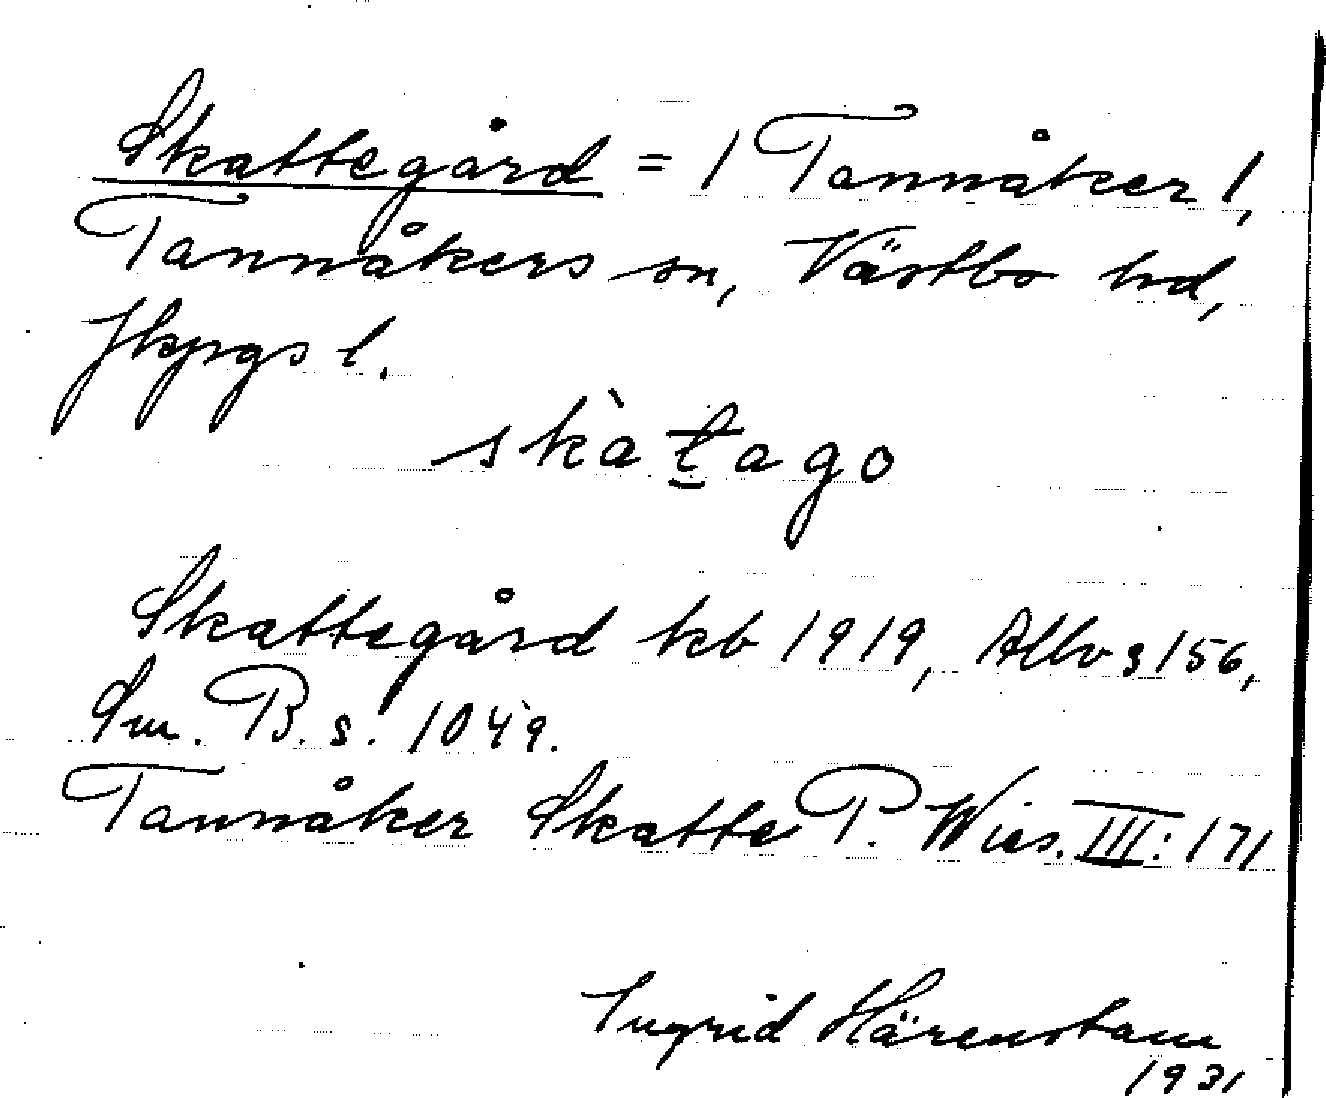 Skattegård = 1 Tannåker 1,
Tannåkers sn, Västbo hd,
Jkpgs l.
skàt̲ago
Skattegård kb 1919, Allvs 156,
Sm. B. s. 1049.
Tannåker Skatte P. Wies. III: 171
Ingrid Härenstam
1931